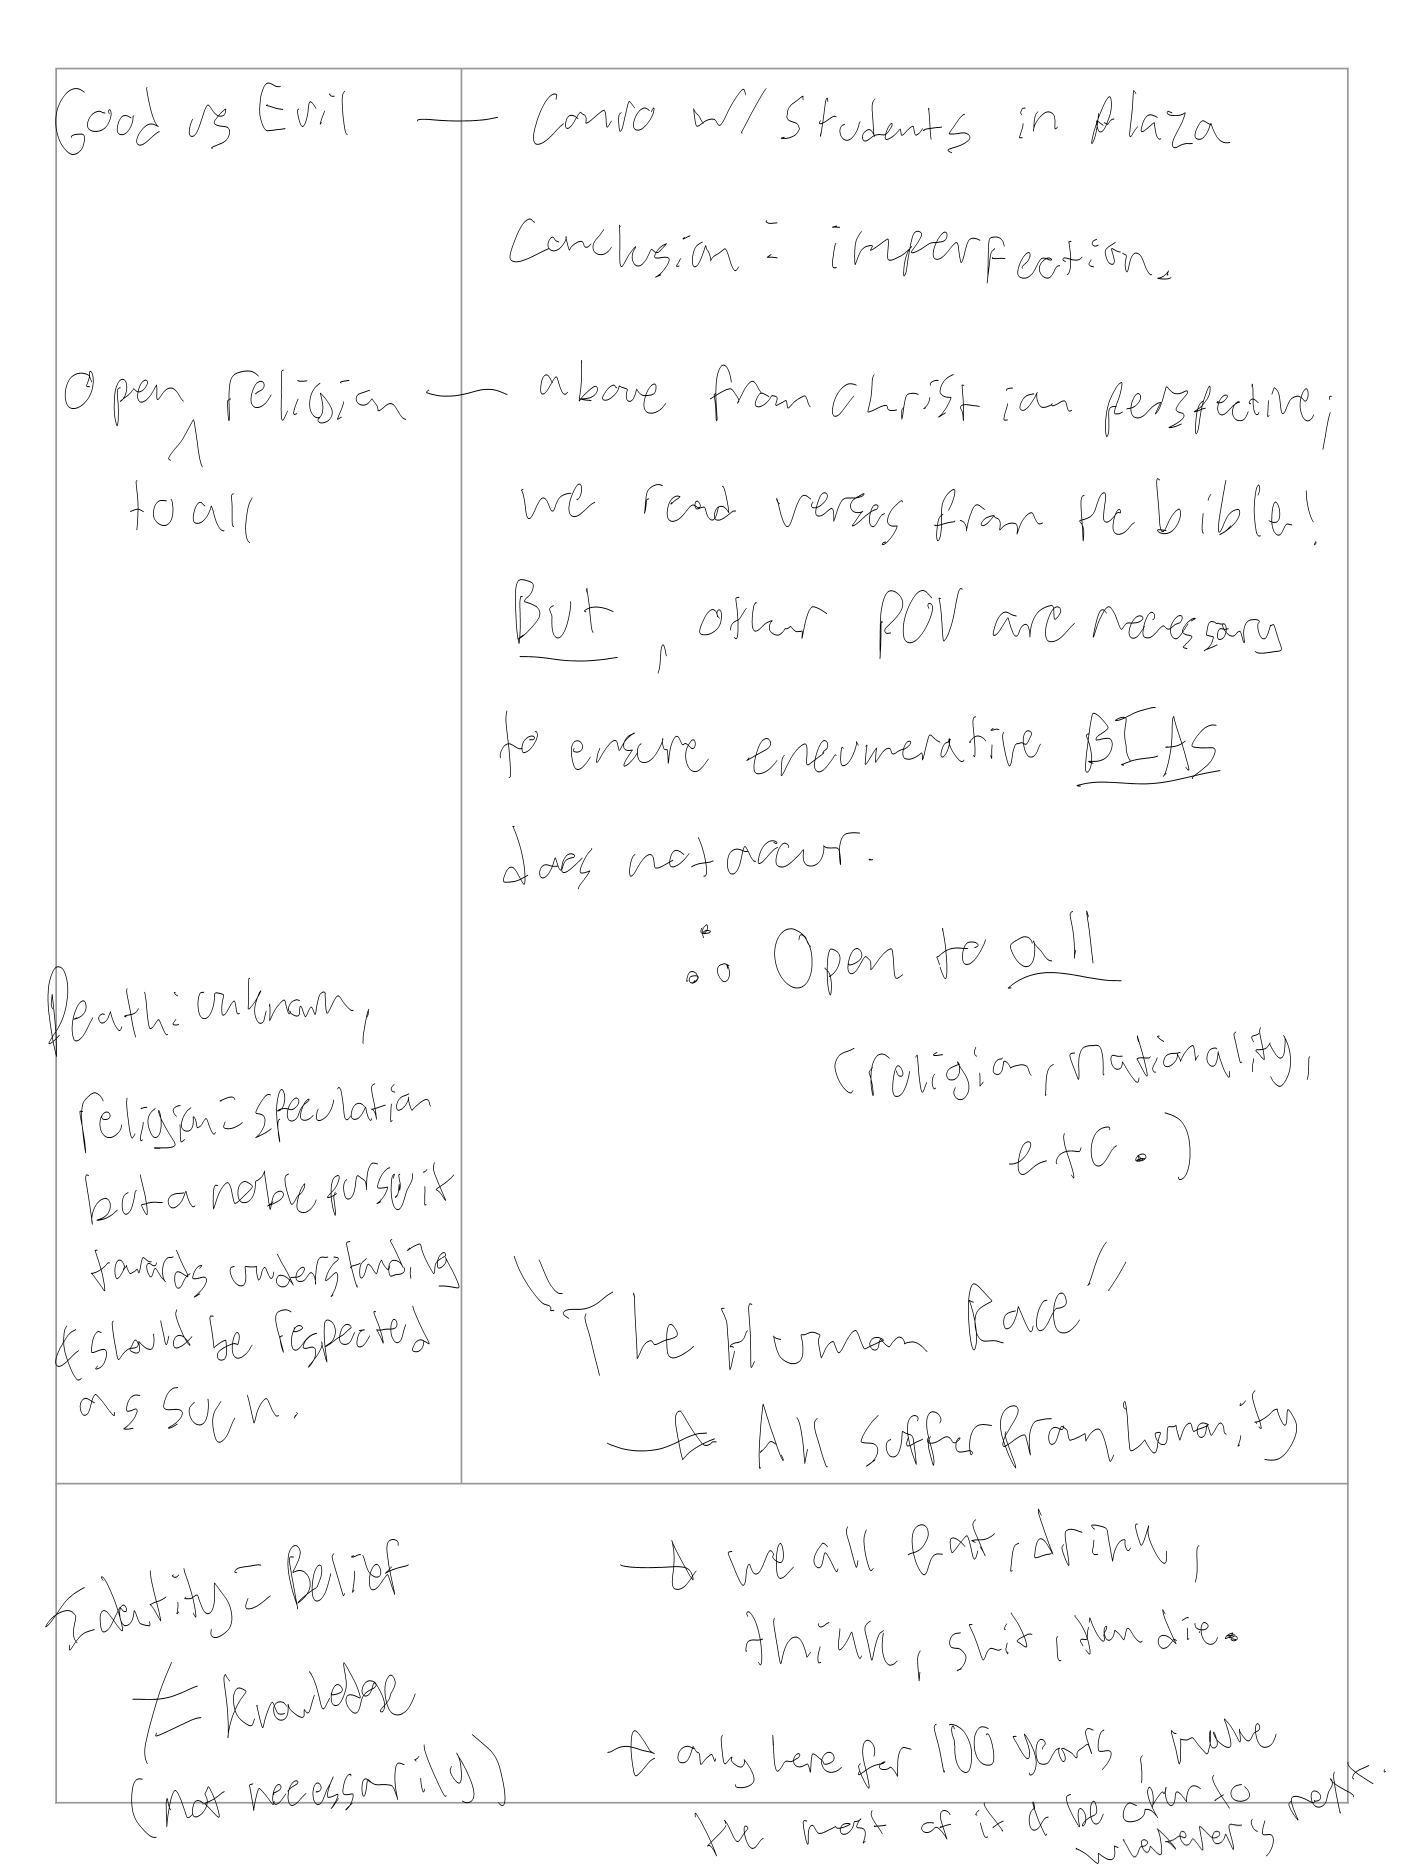 Good vs Evil — Convo w/ Students in Plaza
Conclusion = imperfection.
Open ^ religion — above from christian perspective;
to all
we read verses from the bible!
But, other POV are necessary
to ensure eneumerative BIAS
does not occur.
∴ Open to all
(religion, nationality,
etc.)
Death: unknown,
religion = speculation
but a noble pursuit
towards understanding
& should be respected
as such.
"The Human Race"
→ All suffer from humanity
Identity = Belief
≠ knowledge
(not necessarily)
→ we all eat, drink,
think, shit, then die.
→ only here for 100 years, make
the most of it & be open to
whatever's next.